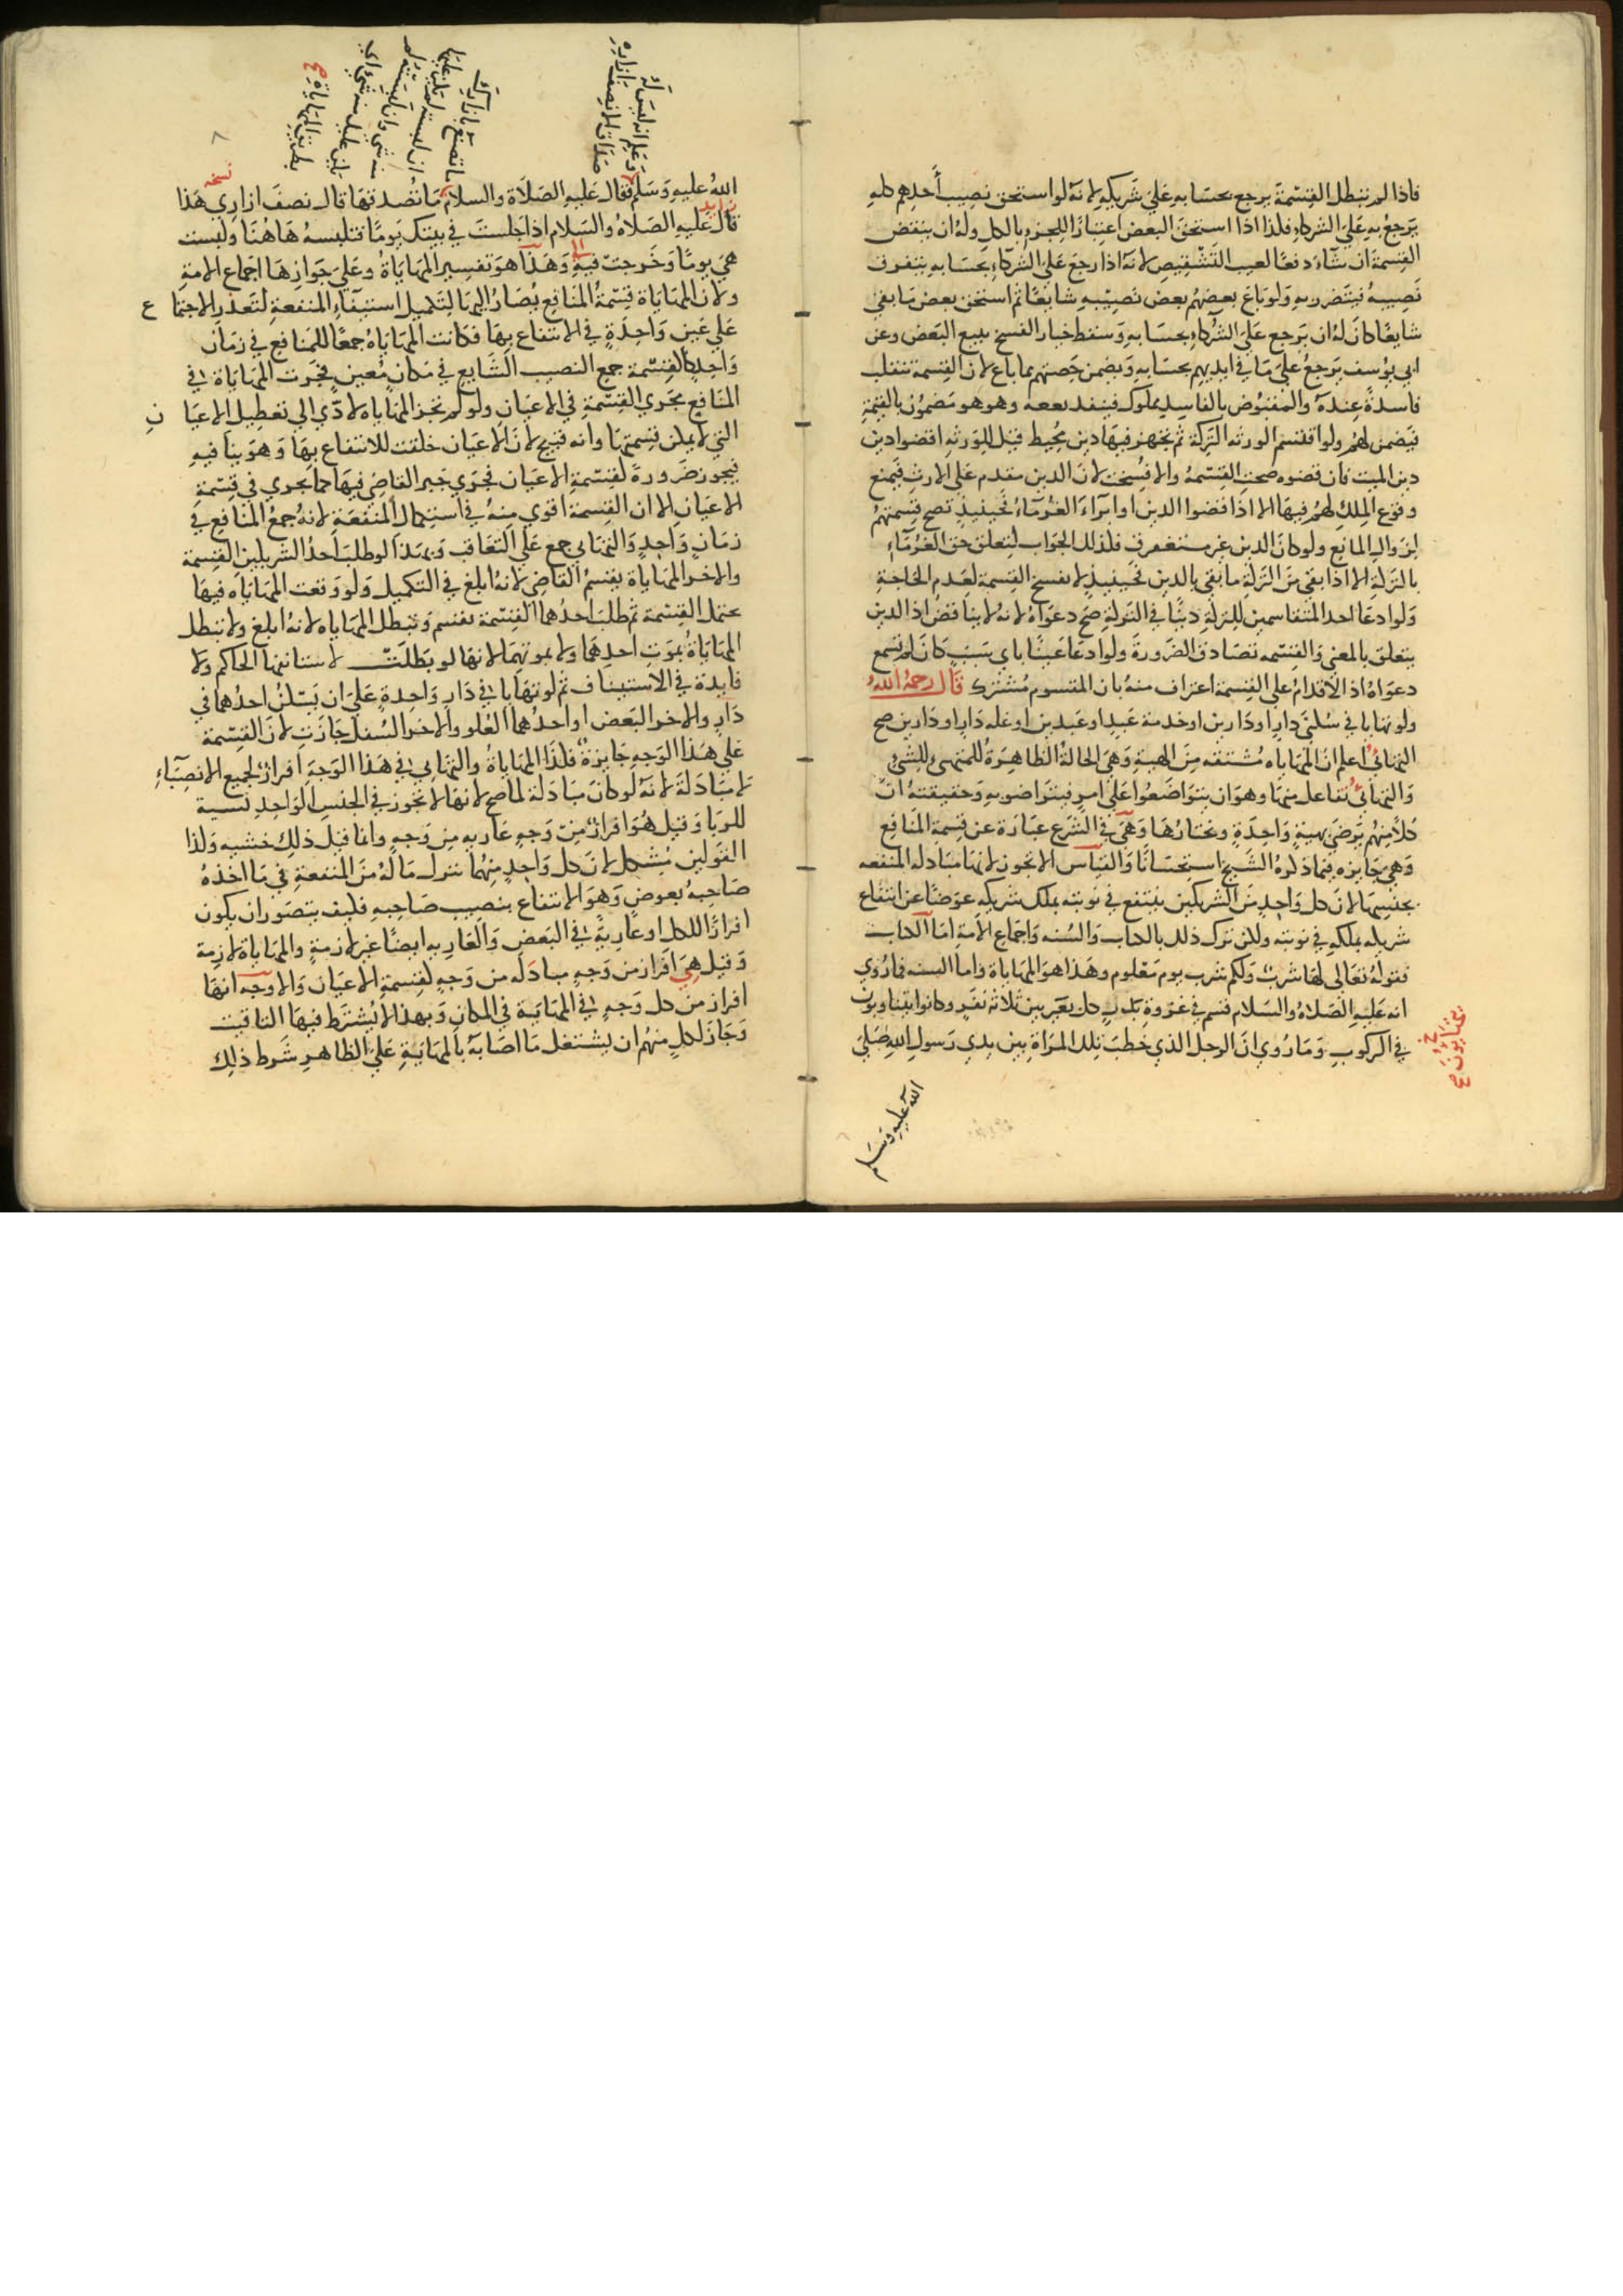 فاذا لم تبطل القسمة يرجع بحسابه على شريكه لانه لو استحق نصيب أحدهم كله
يرجع به على الشركاء فلذا اذا استحق البعض اعتبارًا للجزء بالكل وله ان ينقض
القسمة ان شاء دفعًا لعيب التشقيص لانه اذا رجع على الشركاء بحسابه يتفرق
نصيبه فيتضرر به ولو باع بعضهم بعض نصيبه شايعًا ثم استحق بعض ما بقي
شايعًا كان له ان يرجع على الشركاء بحسابه وسقط خيار الفسخ ببيع البعض وعن
ابي يوسف يرجع على ما في ايديهم بحسابه ويضمن حصتهم مما باع لان القسمة تنقلب
فاسدة عنده والمقبوض بالفاسد مملوك فينفذ بيعه وهو مضمون بالقيمة
فيضمن لهم ولو اقتسم الورثه التركة ثم ظهر فيها دين محيط قيل للورثه اقضوا دين
دين الميت فان قضوه صحت القسمة والا فسخت لان الدين مقدم على الارث فيمنع
وقوع الملك لهم فيها الا اذا قضوا الدين او ابراء الغرماء فحينيذ تصح قسمتهم
لزوال المانع ولو كان الدين غير مستغرق فلذلك الجواب لتعلق حق الغرماء
بالتركة الا اذا بقي من التركة ما يفي بالدين فحينيذ لا تفسخ القسمة لعدم الحاجة
ولو ادعا احد المتقاسمين للتركة دينًا في التركة صح دعواه لانه لا يناقض اذ الدين
يتعلق بالمعنى والقسمه تصادق الصورة ولو ادعا عينًا باي سبب كان لم تسمع
دعواه اذ الاقدام على القسمة اعتراف منه بان المقسوم مشترك قال رحمه الله
ولو تهايا في سكنى دار او دارين او خدمة عبد او عبدين او غله دار او دارين صح
التهائي اعلم ان المهاياه مشتقه من الهيية وهي الحالة الظاهرة للمتهيئ للشيء
والتهائي تفاعل منها وهو ان يتواضعوا على امر فيتراضوا به وحقيقته ان
كلاً منهم يرضى بهيية واحدة ويختارها وهي في الشرع عبارة عن قسمة المنافع
وهي جايزه فيما ذكره الشيخ استحسانًا والقياس الا تجوز لانها مبادله المنفعه
بجنسها لان كل واحد من الشريكين ينتفع في نوبته بملك شريكه عوضًا عن انتفاع
شريكه بملكه في نوبته ولكن ترك ذلك بالكتاب والسنه واجماع الامة اما الكتاب
فقوله تعالى لها شرب ولكم شرب يوم معلوم وهذا هو المهاياة واما السنه فما روي
انه عليه الصلاة والسلام قسم في غزوة بدر كل بعير بين ثلاثة نفر وكانوا يتناوبون
في الركوب وما روي ان الرجل الذي خطب تلك المراة بين يدي رسول الله صلى
الله عليه وسلم
الله عليه وسلم فقال عليه الصلاة والسلام ما تصدقها قال نصف ازاري هذا
قال عليه الصلاة والسلام اذا جلست في بيتك يومًا تتلبسه هاهنا ولبست
هي يومًا وخرجت فيه وهذا هو تفسير المهاياة وعلى جوازها اجماع الامة
ولان المهاياة قسمة المنافع يصار اليها لتكميل استيفاء المنفعة لتعذر الاجتماع
على عين واحدة في الانتفاع بها فكانت المهاياة جمعًا للمنافع في زمان
واحد كالقسمة جمع النصيب الشايع في مكان معين فجرت المهاياة في
المنافع مجرى القسمة في الاعيان ولو لم تجز المهاياة لادى الى تعطيل الاعيان
التي لا يمكن قسمتها وانه قبيح لان الاعيان خلقت للانتفاع بها وهو ينافيه
فيجوز ضرورة لقسمة الاعيان فجرى جبر القاضي فيها كما يجري في قسمة
الاعيان الا ان القسمة اقوي منه في استكمال المنفعة لانه جمع المنافع في
زمان واحد والتهايي جمع على التعاقب وبهذا لو طلب احد الشريكين القسمة
والاخر المهاياة يقسم القاضي لانه ابلغ في التكميل ولو وقعت المهاياه فيما
يحتمل القسمة ثم طلب احدهما القسمة تقسم وتبطل المهاياه لانه ابلغ ولا تبطل
المهاياة بموت احدهما ولا بموتهما لانها لو بطلت لاستانفها الحاكم ولا
فايدة في الاستيناف ثم لو تهايا في دار واحدة على ان يسكن احدهما في
دار والاخر البعض او احدهما العلو والاخر السفل جازت لان القسمة
على هذا الوجه جايزة فلذا المهاياة والتهايي في هذا الوجه افراز لجميع الانصباء
لا مبادلة لانه لو كان مبادلة لما صح لانها لا تجوز في الجنس الواحد نسية
للربا وقيل هو افراز من وجه عاريه من وجه وانما قيل ذلك خشيه ولذا
القولين مشكل لان كل واحد منهما يترك ما له من المنفعة في ما اخذه
صاحبه بعوض وهو الانتفاع بنصيب صاحبه فكيف يتصور ان يكون
افرازًا للكل او عارية في البعض والعاريه ايضًا غير لازمة والمهاياة لازمة
وقيل هي افراز من وجه مبادله من وجه لقسمة الاعيان والاوجه انها
افراز من كل وجه في المهاية في المكان وبهذا لا يشترط فيها التاقيت
وجاز لكل منهم ان يشتغل ما اصابه بالمهاية على الظاهر شرط ذلك